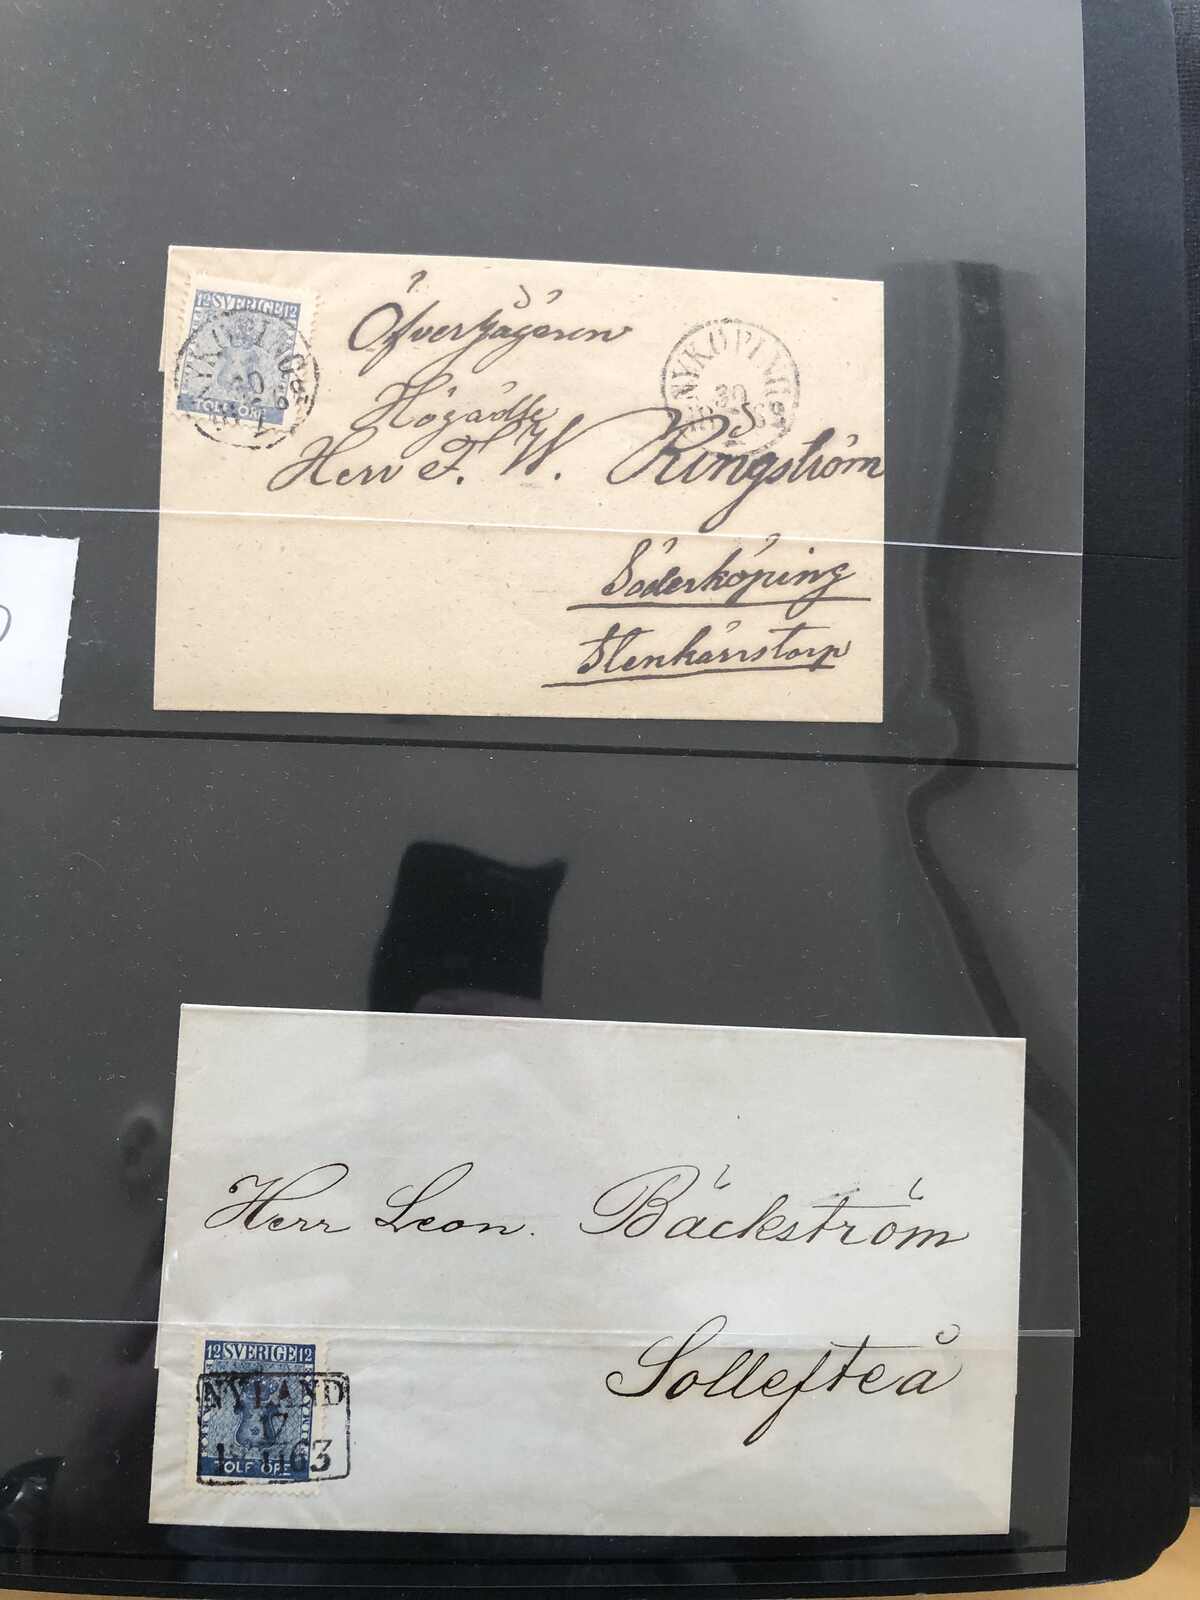 12 SVERIGE 12
TOLF ÖRE
NYKÖPING
30
NYKÖPING
30
Öfverjägaren
Högädle
Herr F. W. Ringström
Söderköping
Stenkärrstorp
Herr Leon. Bäckström
Sollefteå
12 SVERIGE 12
TOLF ÖRE
NYLAND
17
1863